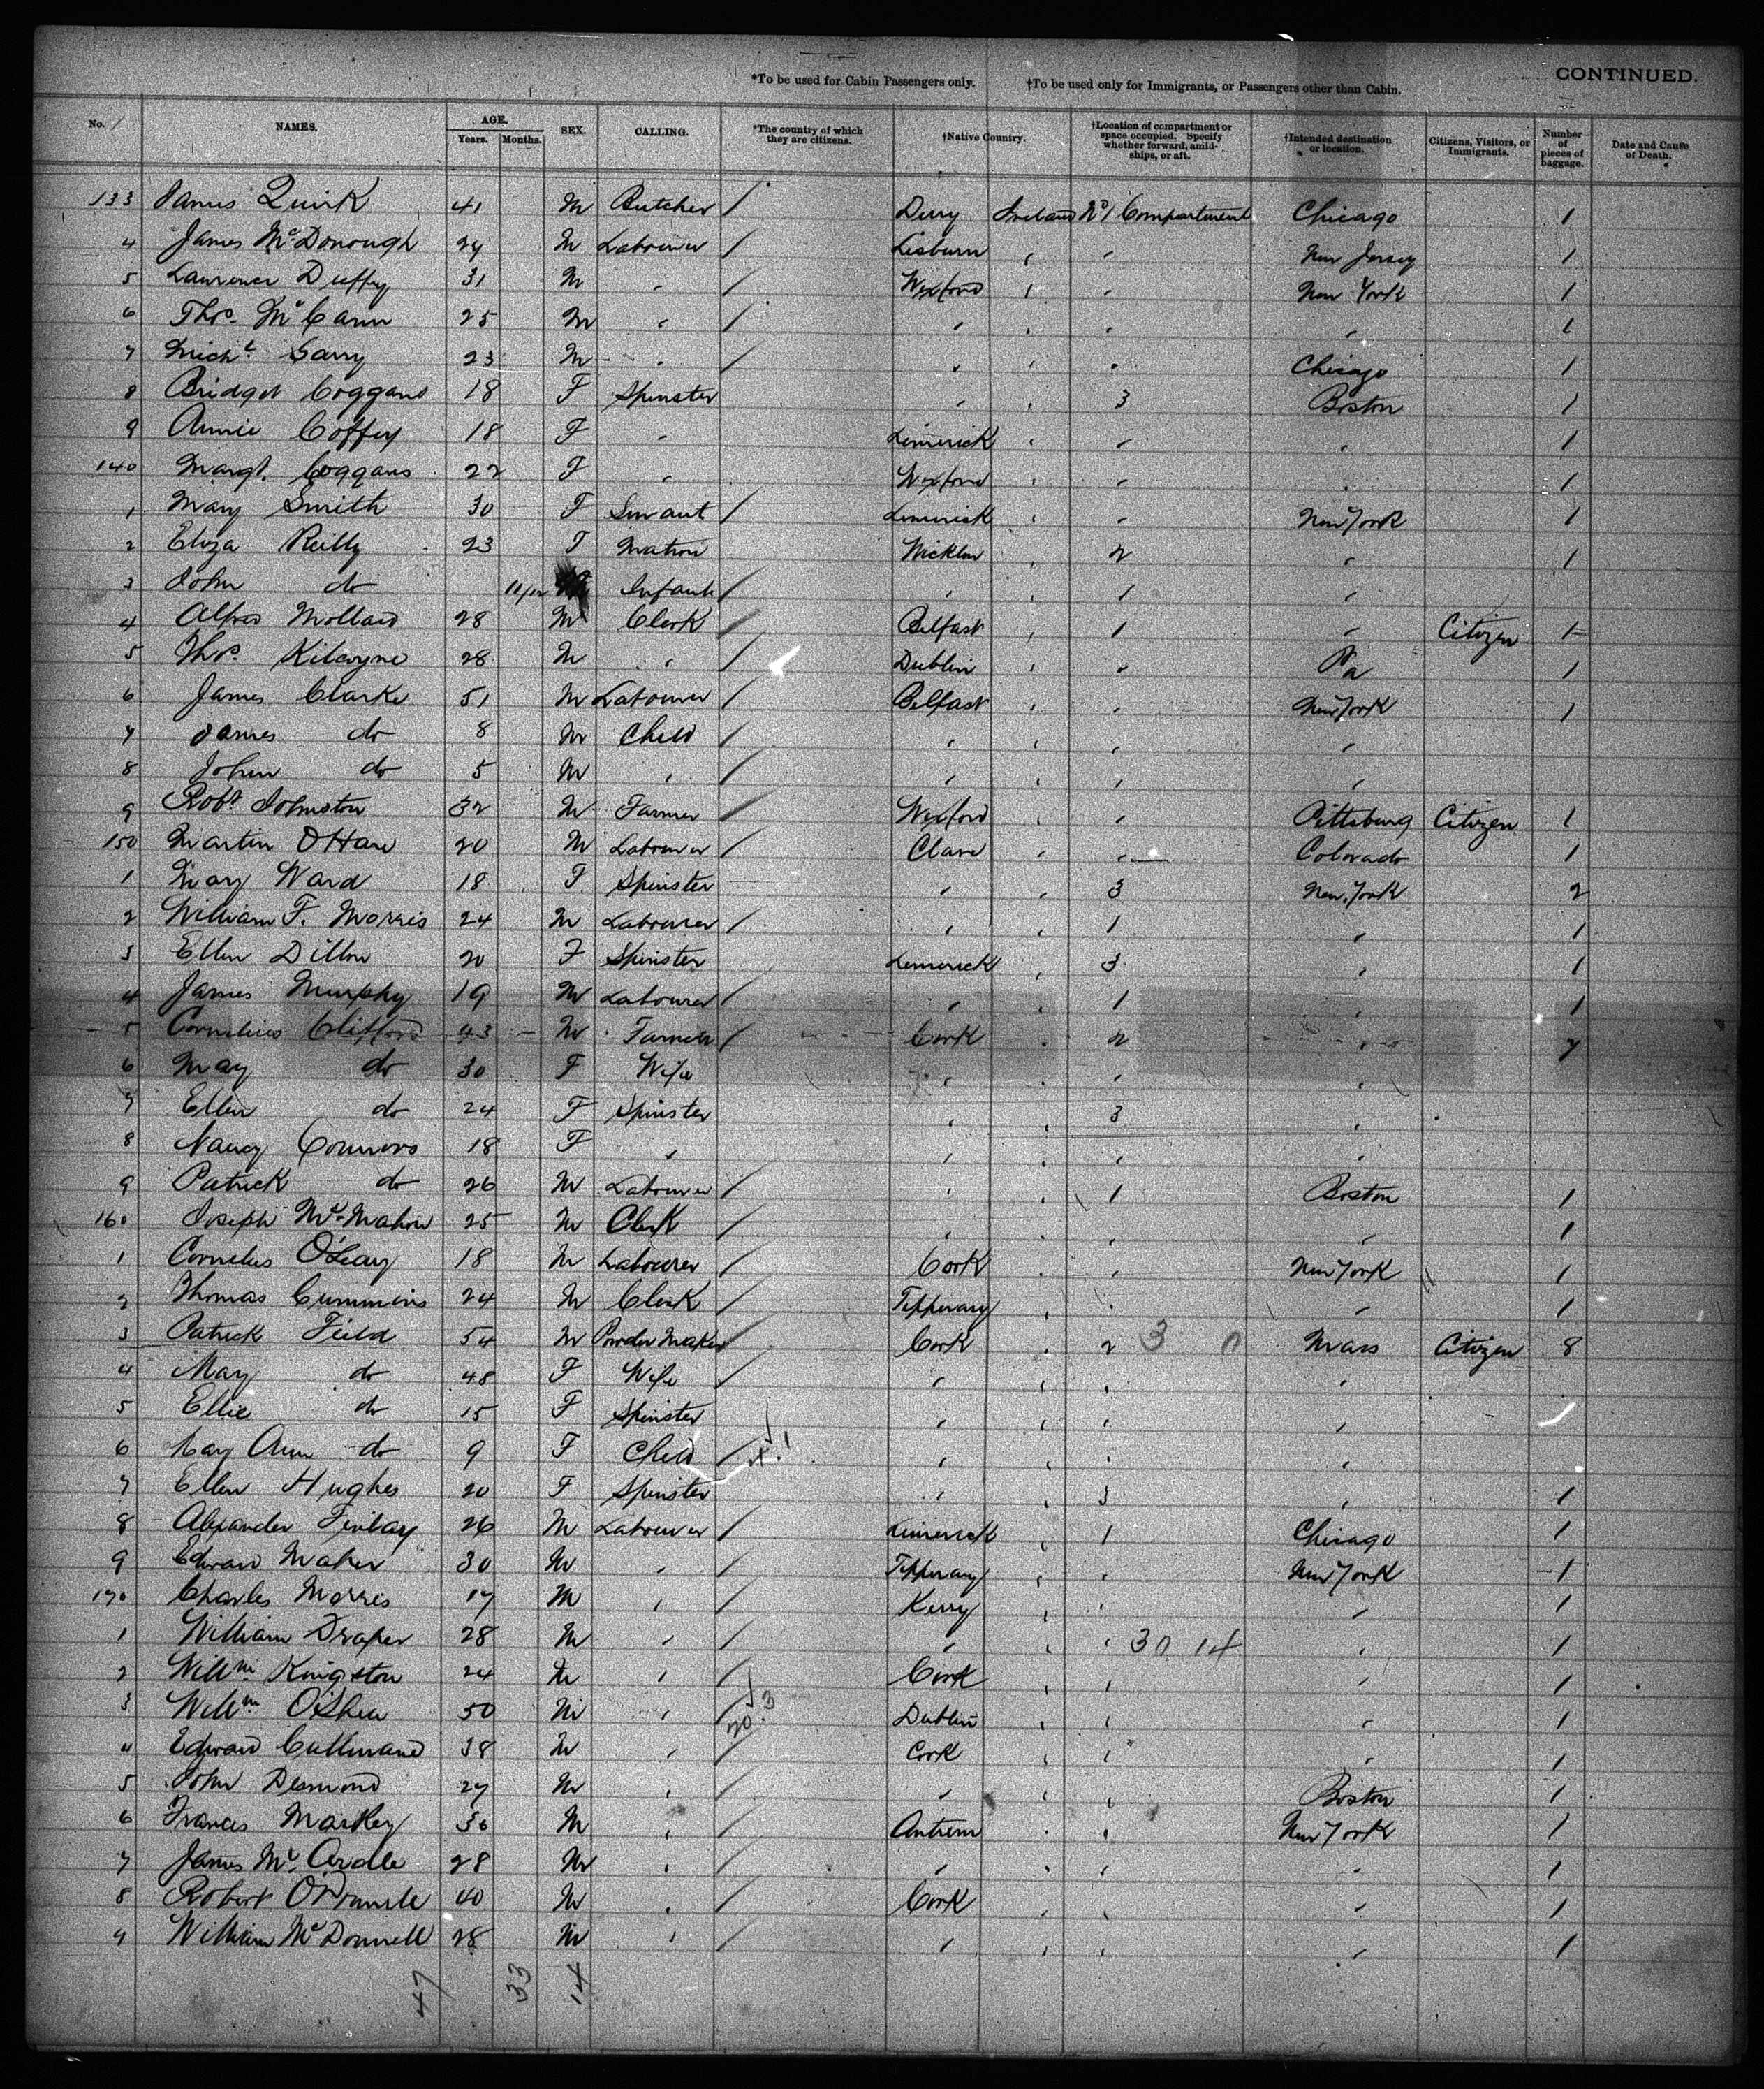 *To be used for Cabin Passengers only. †To be used only for Immigrants, or Passengers other than Cabin. CONTINUED.
No. NAMES. AGE. Years. Months. SEX. CALLING. *The country of which they are citizens. †Native Country. †Location of compartment or space occupied. Specify whether forward, amidships, or aft. †Intended destination or location. Citizens, Visitors, or Immigrants. Number of pieces of baggage. Date and Cause of Death.
133 James Quirk 41 M Butcher / Derry Ireland No 1 Compartment Chicago 1
4 James McDonough 24 M Labourer / Lisburn " " New Jersey 1
5 Laurence Duffy 31 M " / Wexford " " New York 1
6 Thos. McCann 25 M " / " " " " 1
7 Michl. Garry 23 M " / " " " Chicago 1
8 Bridget Coggans 18 F Spinster " " 3 Boston 1
9 Annie Coffey 18 F " Limerick " " " 1
140 Margt. Coggans 22 F " Wexford " " " 1
1 Mary Smith 30 F Servant / Limerick " " New York 1
2 Eliza Reilly 23 F Matron Wicklow " 2 " 1
3 John do 11/12 Infant / " " 1 "
4 Alfred Mollard 28 M Clerk / Belfast " 1 " Citizen 1
5 Thos. Kilcoyne 28 M " / Dublin " " Pa 1
6 James Clarke 51 M Labourer / Belfast " " New York 1
7 James do 8 M Child / " " " "
8 John do 5 M " / " " " "
9 Robt. Johnston 32 M Farmer / Wexford " " Pittsburg Citizen 1
150 Martin OHare 20 M Labourer / Clare " " Colorado 1
1 Mary Ward 18 F Spinster " " 3 New York 2
2 William F. Morris 24 M Labourer / " " 1 " 1
3 Ellen Dillon 20 F Spinster Limerick " 3 " 1
4 James Murphy 19 M Labourer / " " 1 " 1
5 Cornelius Clifford 43 M Farmer / Cork " 2 " 7
6 May do 30 F Wife " " " "
7 Ellen do 24 F Spinster " " 3 "
8 Nancy Connors 18 F " " " " "
9 Patrick do 26 M Labourer / " " 1 Boston 1
160 Joseph McMahon 25 M Clerk / " " " " 1
1 Cornelius O'Leary 18 M Labourer / Cork " " New York 1
2 Thomas Cummins 24 M Clerk / Tipperary " " " 1
3 Patrick Field 54 M Powder Maker / Cork " 2 3 0 Mass Citizen 8
4 May do 48 F Wife / " " " "
5 Ellie do 15 F Spinster " " " "
6 May Ann do 9 F Child / " " " "
7 Ellen Hughes 20 F Spinster " " 3 " 1
8 Alexander Finlay 26 M Labourer / Limerick " 1 Chicago 1
9 Edward Maher 30 M " / Tipperary " " New York 1
170 Charles Morris 17 M " / Kerry " " " 1
1 William Draper 28 M " / " " " 30 14 " 1
2 Willm Kingston 24 M " / Cork " " " 1
3 Willm O'Shea 50 M " / 20 3 Dublin " " " 1
4 Edward Cullinane 38 M " / Cork " " " 1
5 John Desmond 27 M " / " " " Boston 1
6 Frances Markey 36 M " / Antrim " " New York 1
7 James McArdle 28 M " / " " " " 1
8 Robert O'Donnell 40 M " / Cork " " " 1
9 William McDonnell 28 M " / " " " " 1
47 33 14